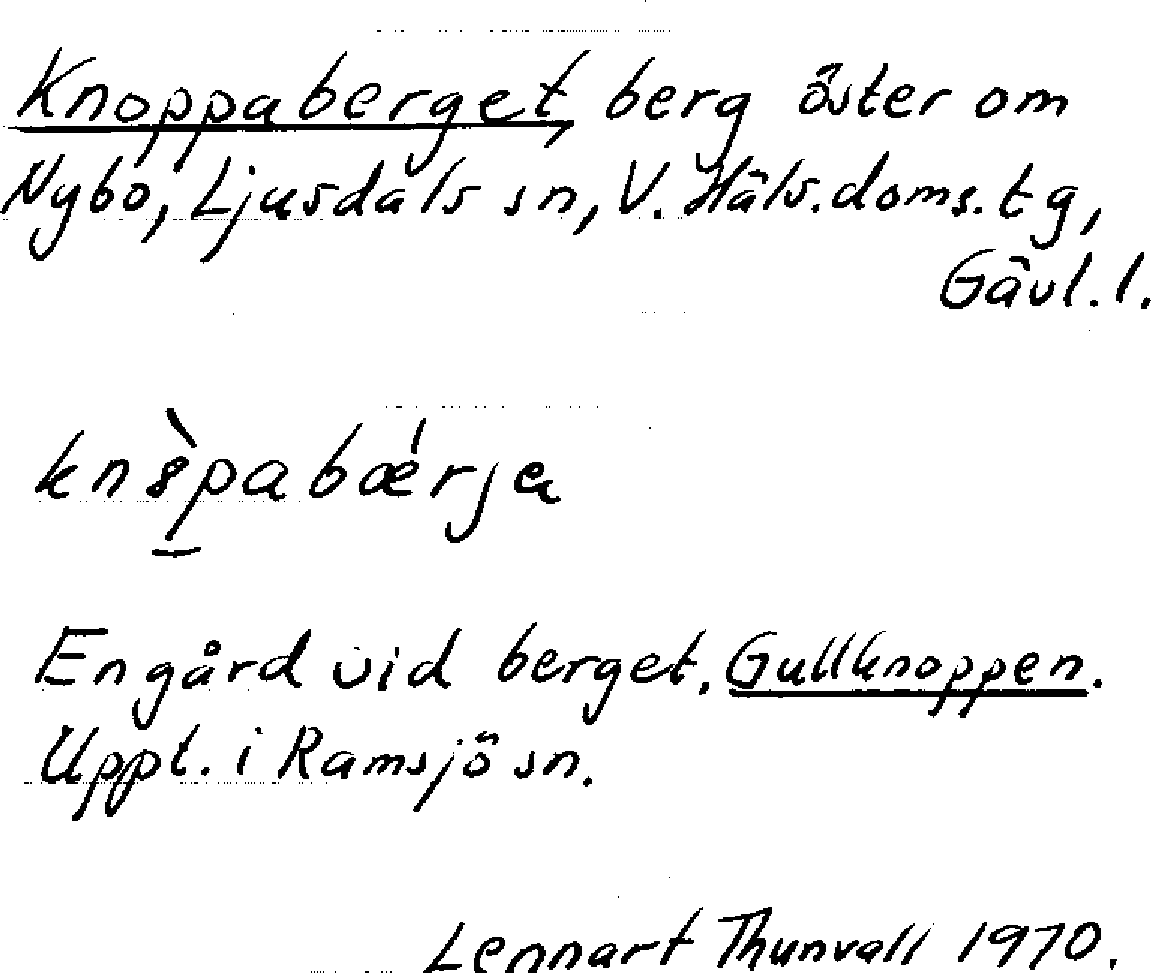 Knoppaberget, berg öster om
Nybo, Ljusdals sn, V. Häls. doms. tg,
Gävl. l.
En gård vid berget. Gullknoppen.
Uppt. i Ramsjö sn.
Lennart Thunvall 1970.